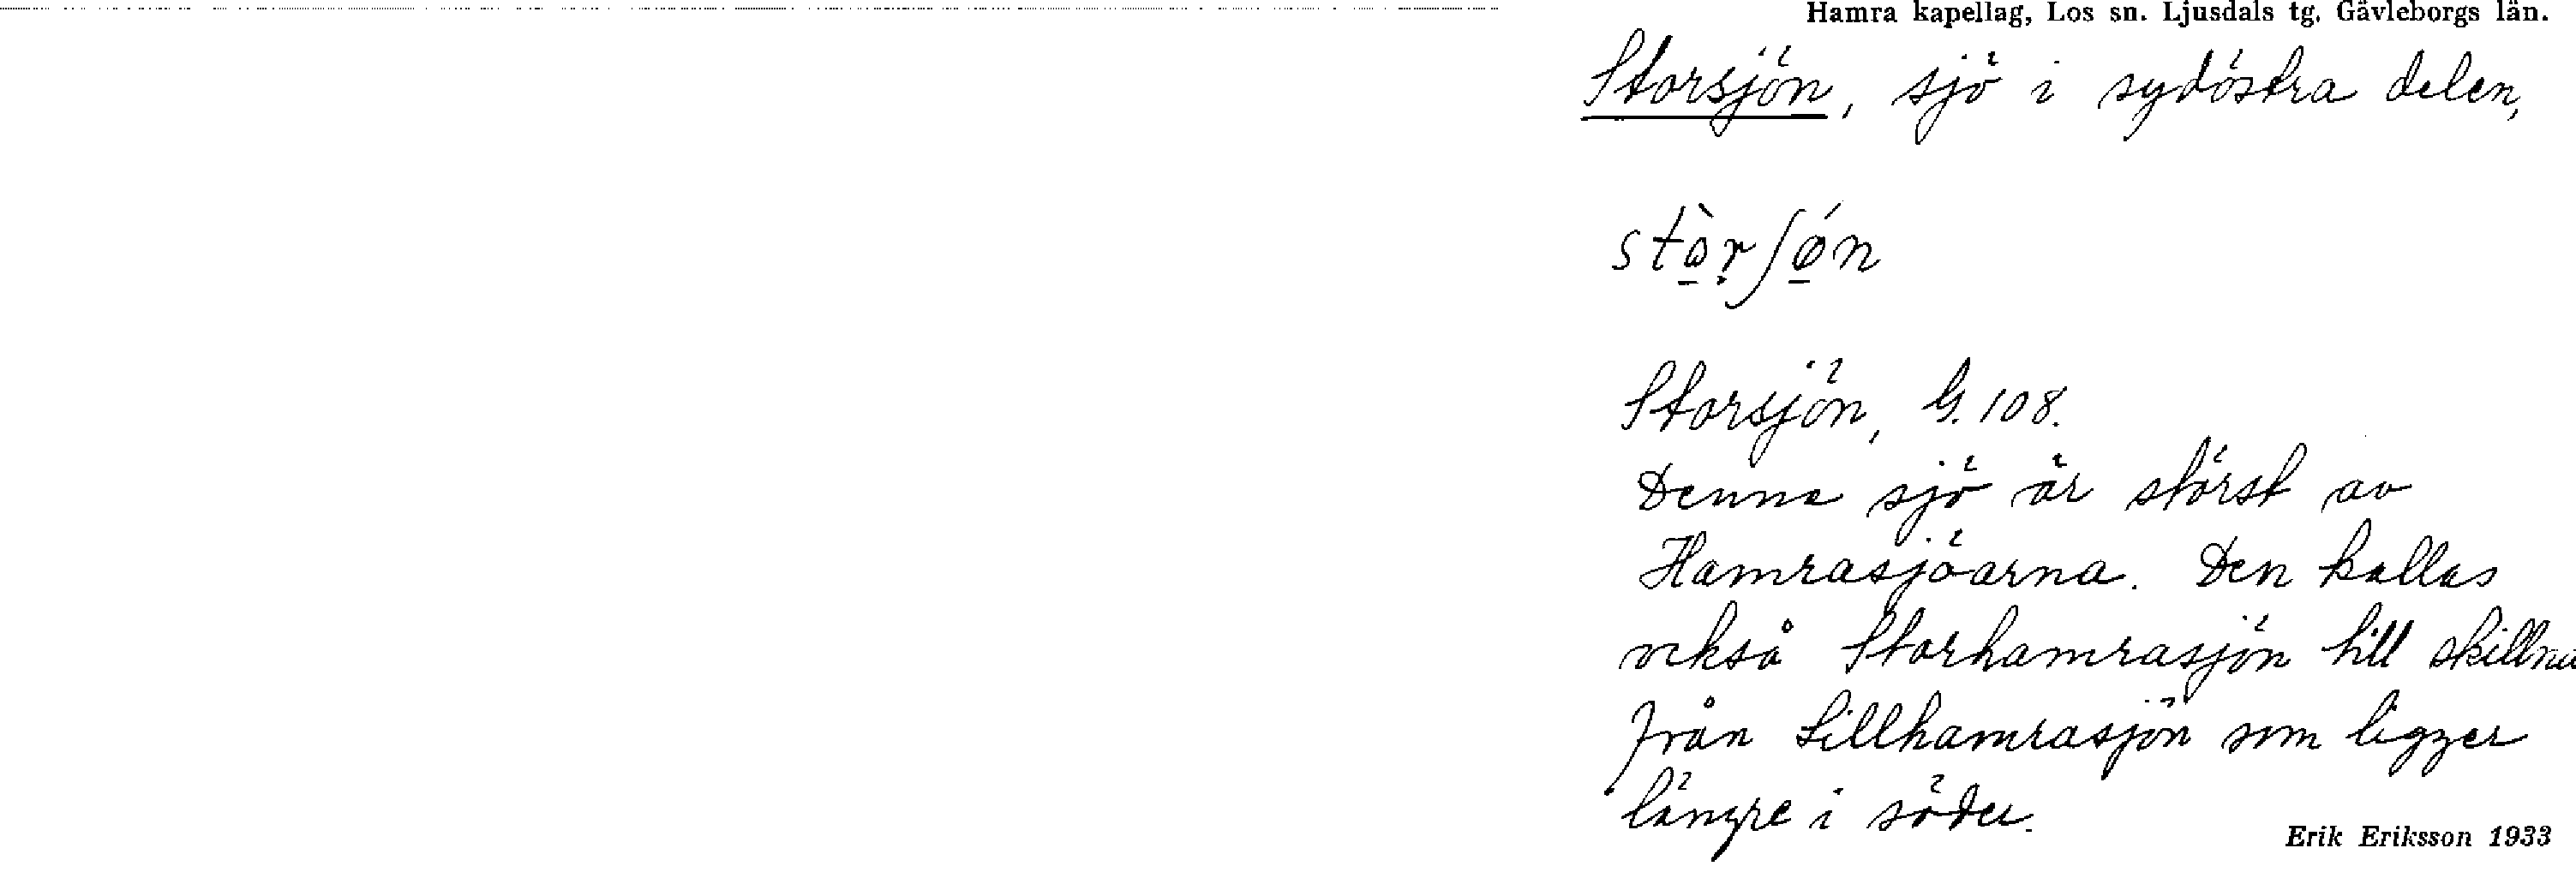 Hamra kapellag, Los sn. Ljusdals tg. Gävleborgs län.
Storsjön, sjö i sydöstra delen,
stò̱ṛʃǿ̱n
Storsjön, G. 108.
Denna sjö är störst av
Hamrasjöarna. Den kallas
också Storhamrasjön till skillna
från Lillhamrasjön som ligger
längre i söder.
Erik Eriksson 1933